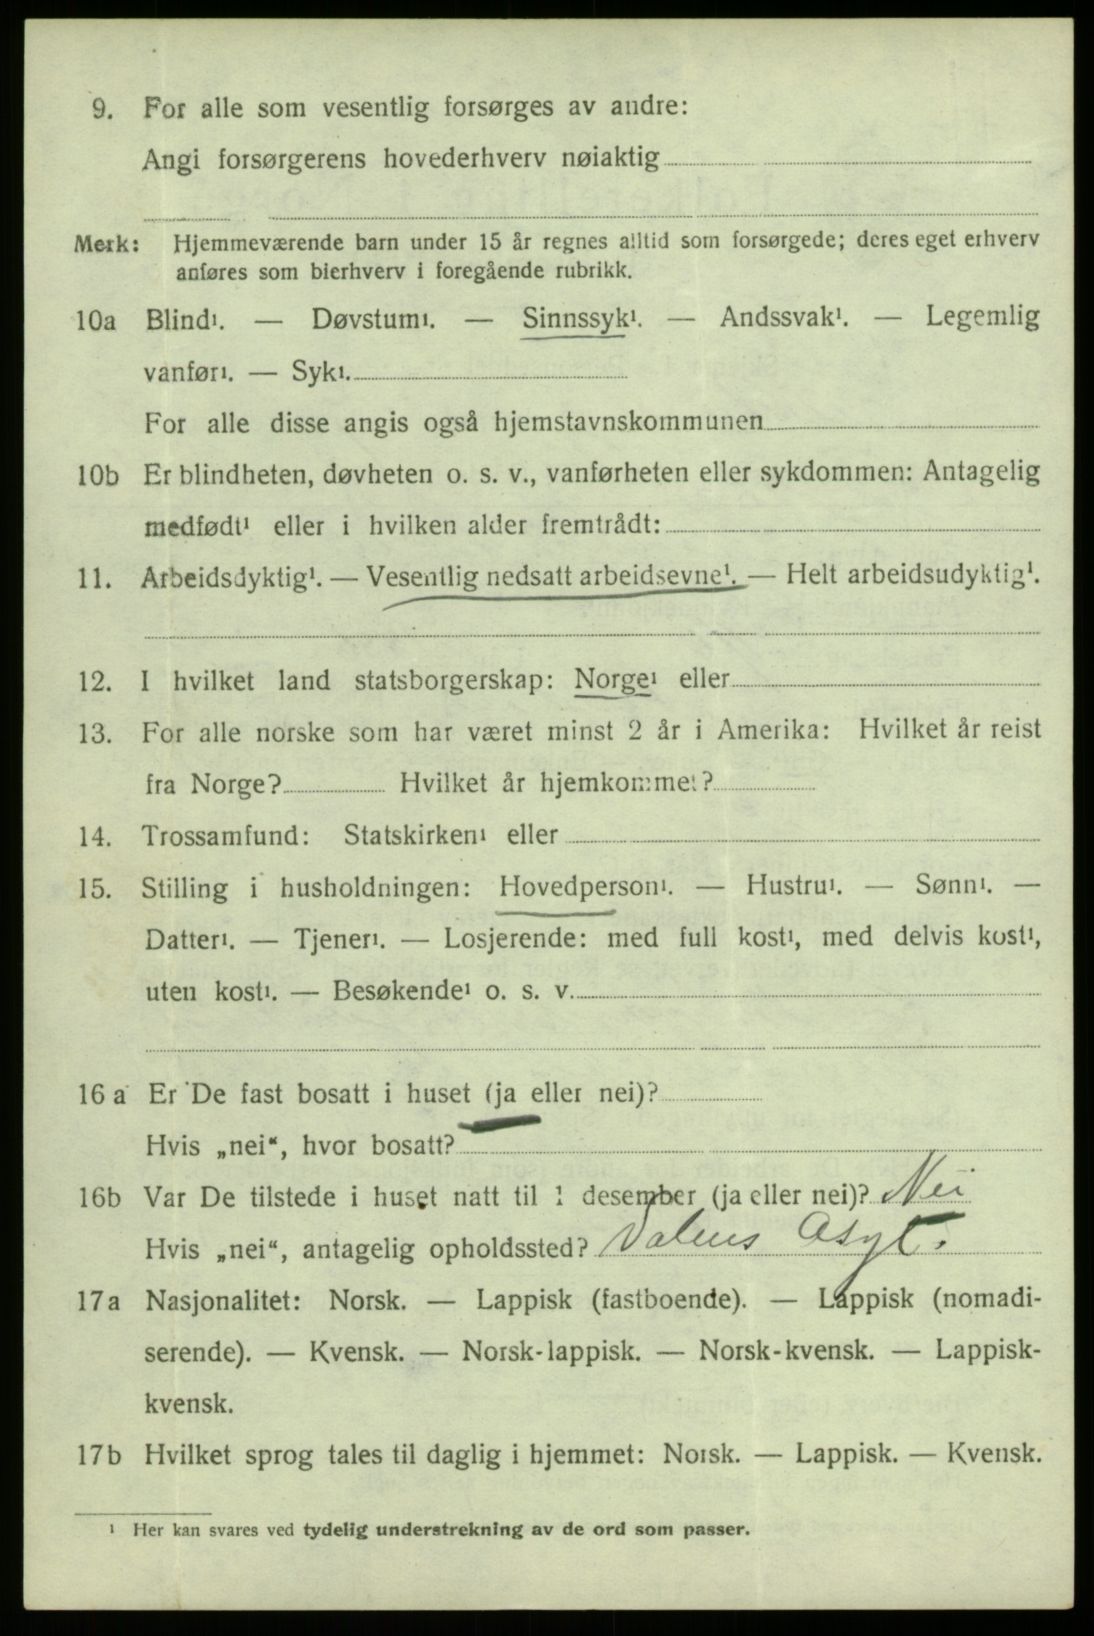 9. For alle som vesentlig forsørges av andre:
Angi forsørgerens hovederhverv nøiaktig
Merk: Hjemmeværende barn under 15 år regnes alltid som forsørgede; deres eget erhverv
anføres som bierhverv i foregående rubrikk.
10a Blind¹. — Døvstum¹. — Sinnssyk¹. — Andssvak¹. — Legemlig
vanfør¹. — Syk¹.
For alle disse angis også hjemstavnskommunen
10b Er blindheten, døvheten o. s. v., vanførheten eller sykdommen: Antagelig
medfødt¹ eller i hvilken alder fremtrådt:
11. Arbeidsdyktig¹. — Vesentlig nedsatt arbeidsevne¹. — Helt arbeidsudyktig¹.
12. I hvilket land statsborgerskap: Norge¹ eller
13. For alle norske som har været minst 2 år i Amerika: Hvilket år reist
fra Norge? Hvilket år hjemkommet?
14. Trossamfund: Statskirken¹ eller
15. Stilling i husholdningen: Hovedperson¹. — Hustru¹. — Sønn¹. —
Datter¹. — Tjener¹. — Losjerende: med full kost¹, med delvis kost¹,
uten kost¹. — Besøkende¹ o. s. v.
16 a Er De fast bosatt i huset (ja eller nei)?
Hvis „nei“, hvor bosatt?
16b Var De tilstede i huset natt til 1 desember (ja eller nei)? Nei
Hvis „nei“, antagelig opholdssted? Valens Asyl.
17a Nasjonalitet: Norsk. — Lappisk (fastboende). — Lappisk (nomadi-
serende). — Kvensk. — Norsk-lappisk. — Norsk-kvensk. — Lappisk-
kvensk.
17b Hvilket sprog tales til daglig i hjemmet: Norsk. — Lappisk. — Kvensk.
¹ Her kan svares ved tydelig understrekning av de ord som passer.